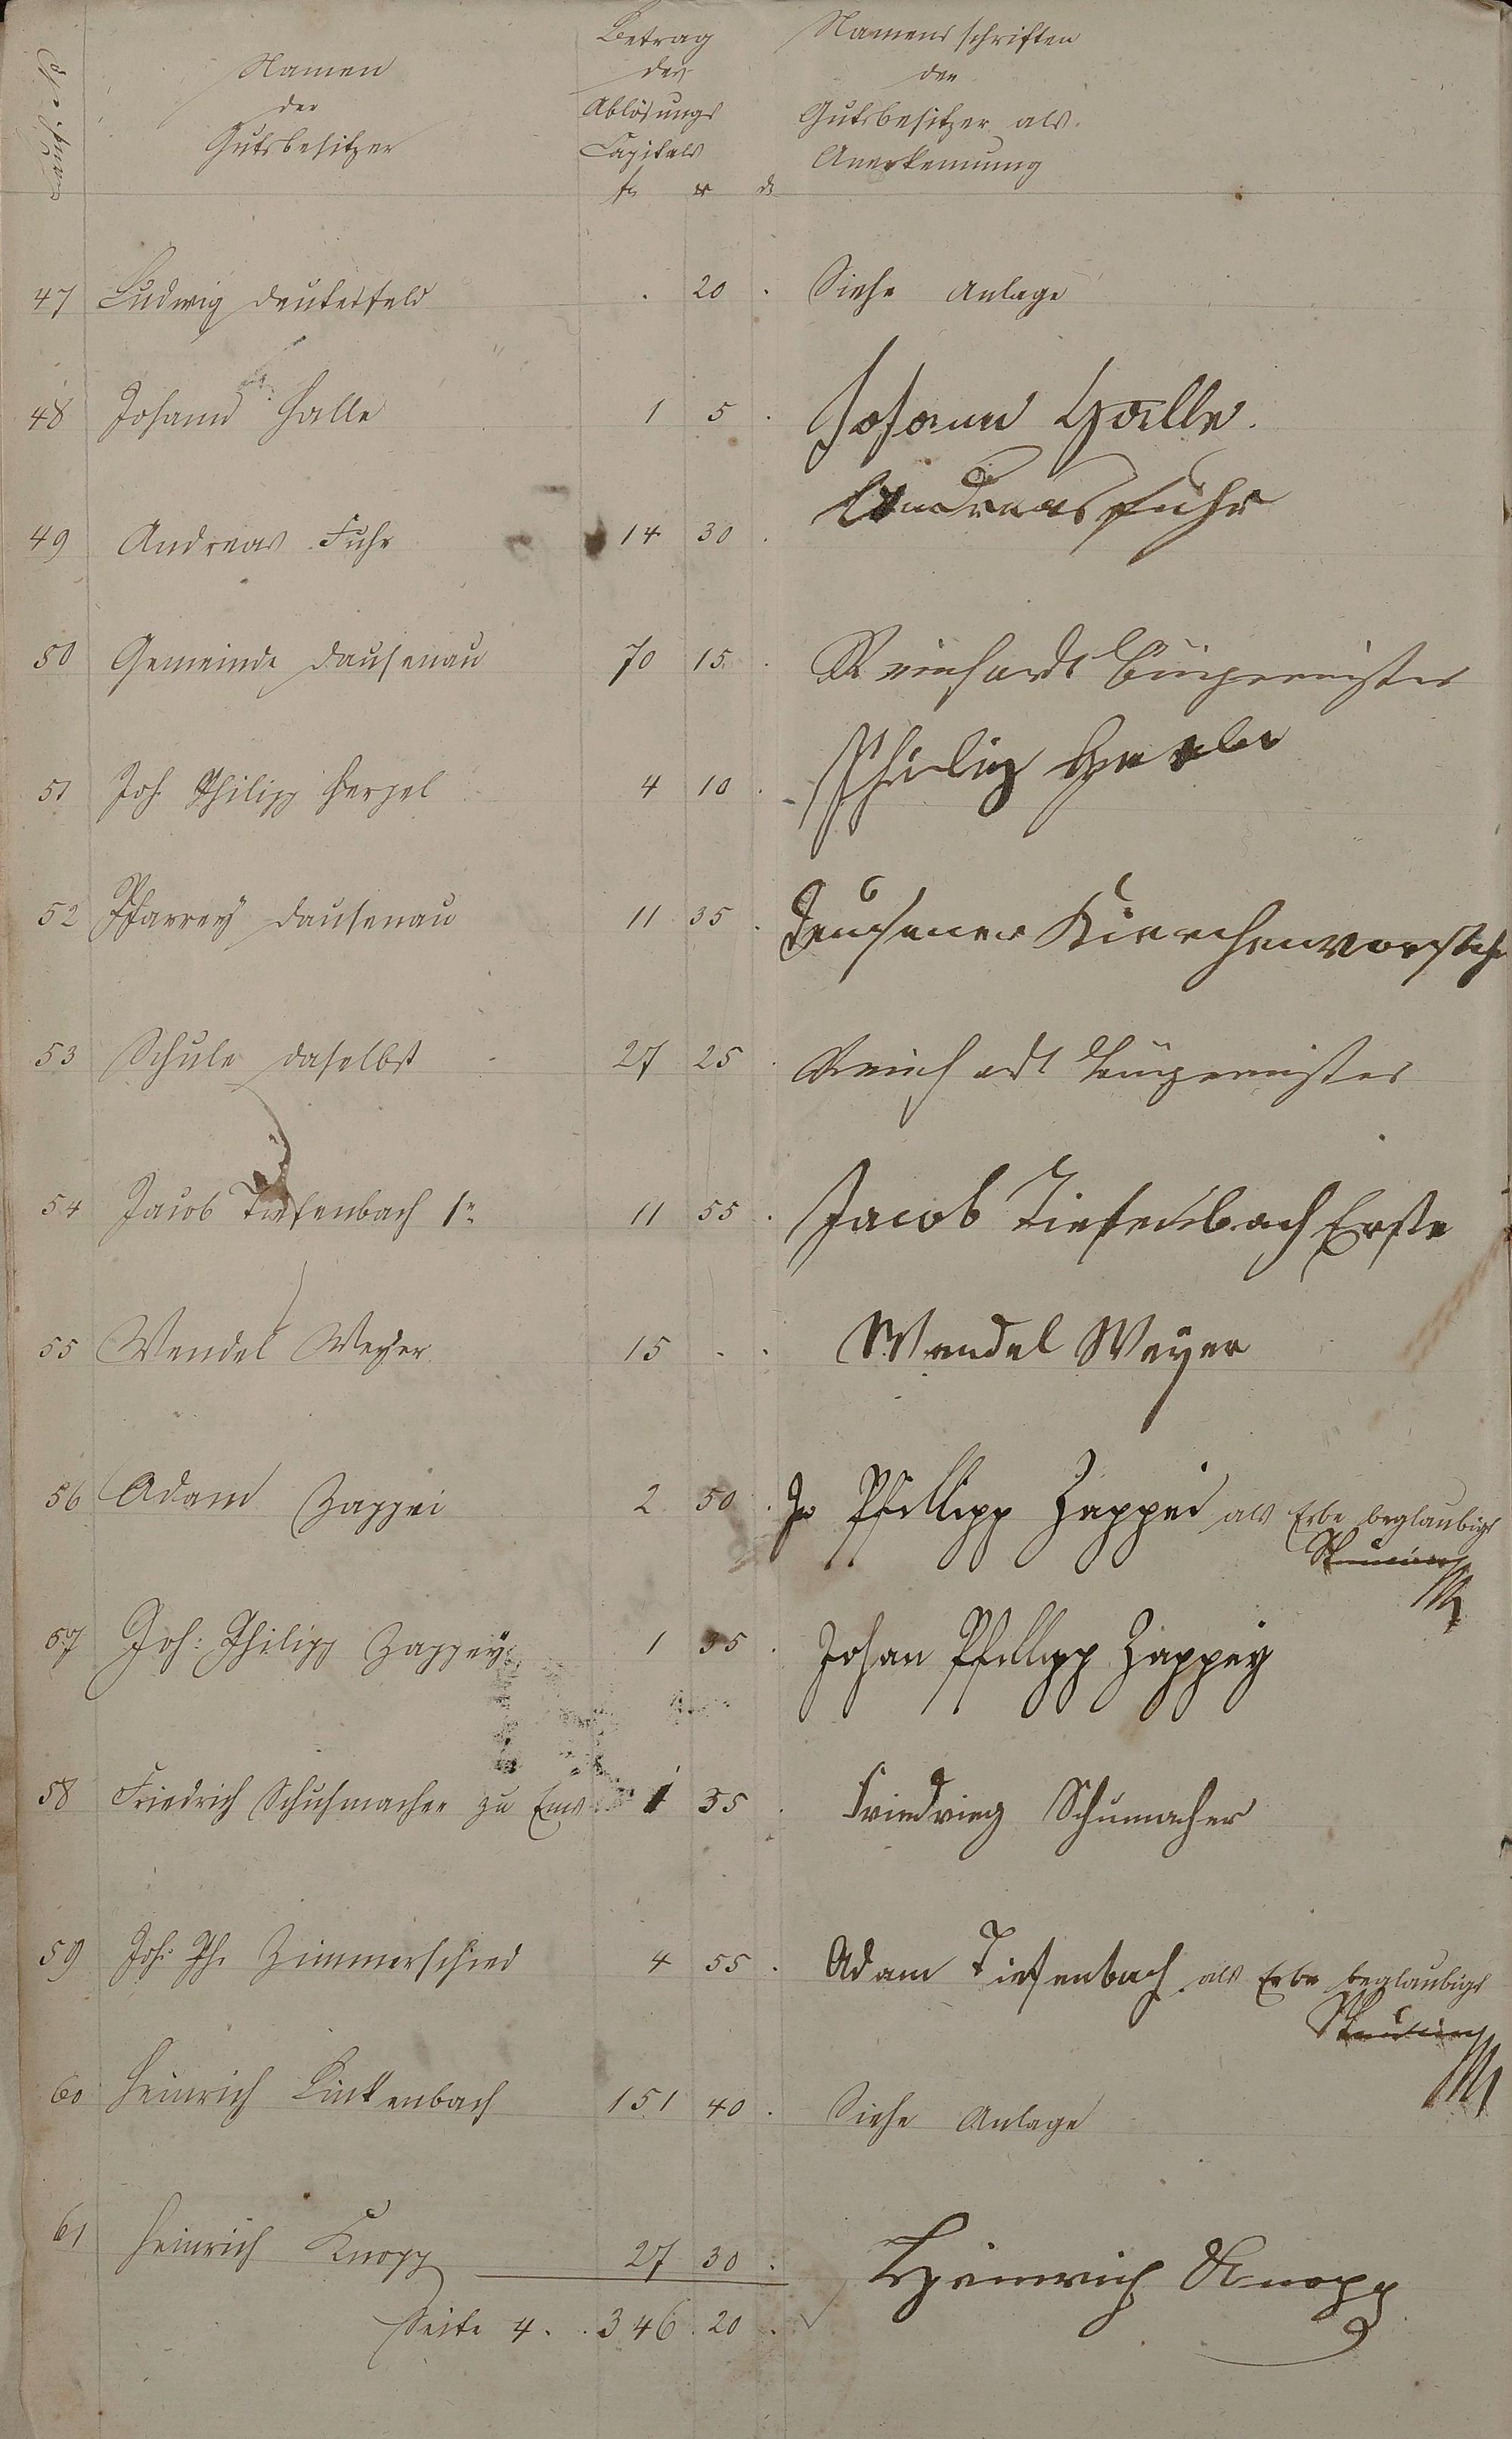 Namen
der
Gutsbesitzer
Betrag
der
Ablösungs
Capitals
fl x d
Namensschriften
der
Gutsbesitzer als
Anerkennung
47 Ludwig Dentesfeld . 20 . Siehe Anlage
48 Johann Halle 1 5 . Johann Halle.
49 Andreas Fuhr 14 30 . Andreas Fuhr
50 Gemeinde Dausenau 70 15 . Reinhardt Bürgermeister
51 Joh. Philipp Herzel 4 10 . Philip
52 Pfarrey Dausenau 11 35 . Kierchenvorsteh
53 Schule daselbst 27 25 . Reinhardt Bürgermeister
54 Jacob Tiefenbach 1r 11 55 . Jacob Tiefenbach Erste
55 Wendel Weyer 15 . . Wendel Weyer
56 Adam Zappei 2 50 . Jo Phillipp Zappei als Erbe beglaubigt
57 Joh: Philipp Zappey 1 35 . Johan Phillipp Zappey
58 Friedrich Schuhmacher zu Ems 1 35 . Friedrieg Schumacher
59 Joh: Ph. Zimmerschied 4 55 . Adam Tiefenbach als Erbe beglaubigt
60 Heinrich Linkenbach 151 40 . Siehe Anlage
61 Heinrich Knopp 27 30 . Heinrich Knopp
Seite 4. . 346 . 20 .